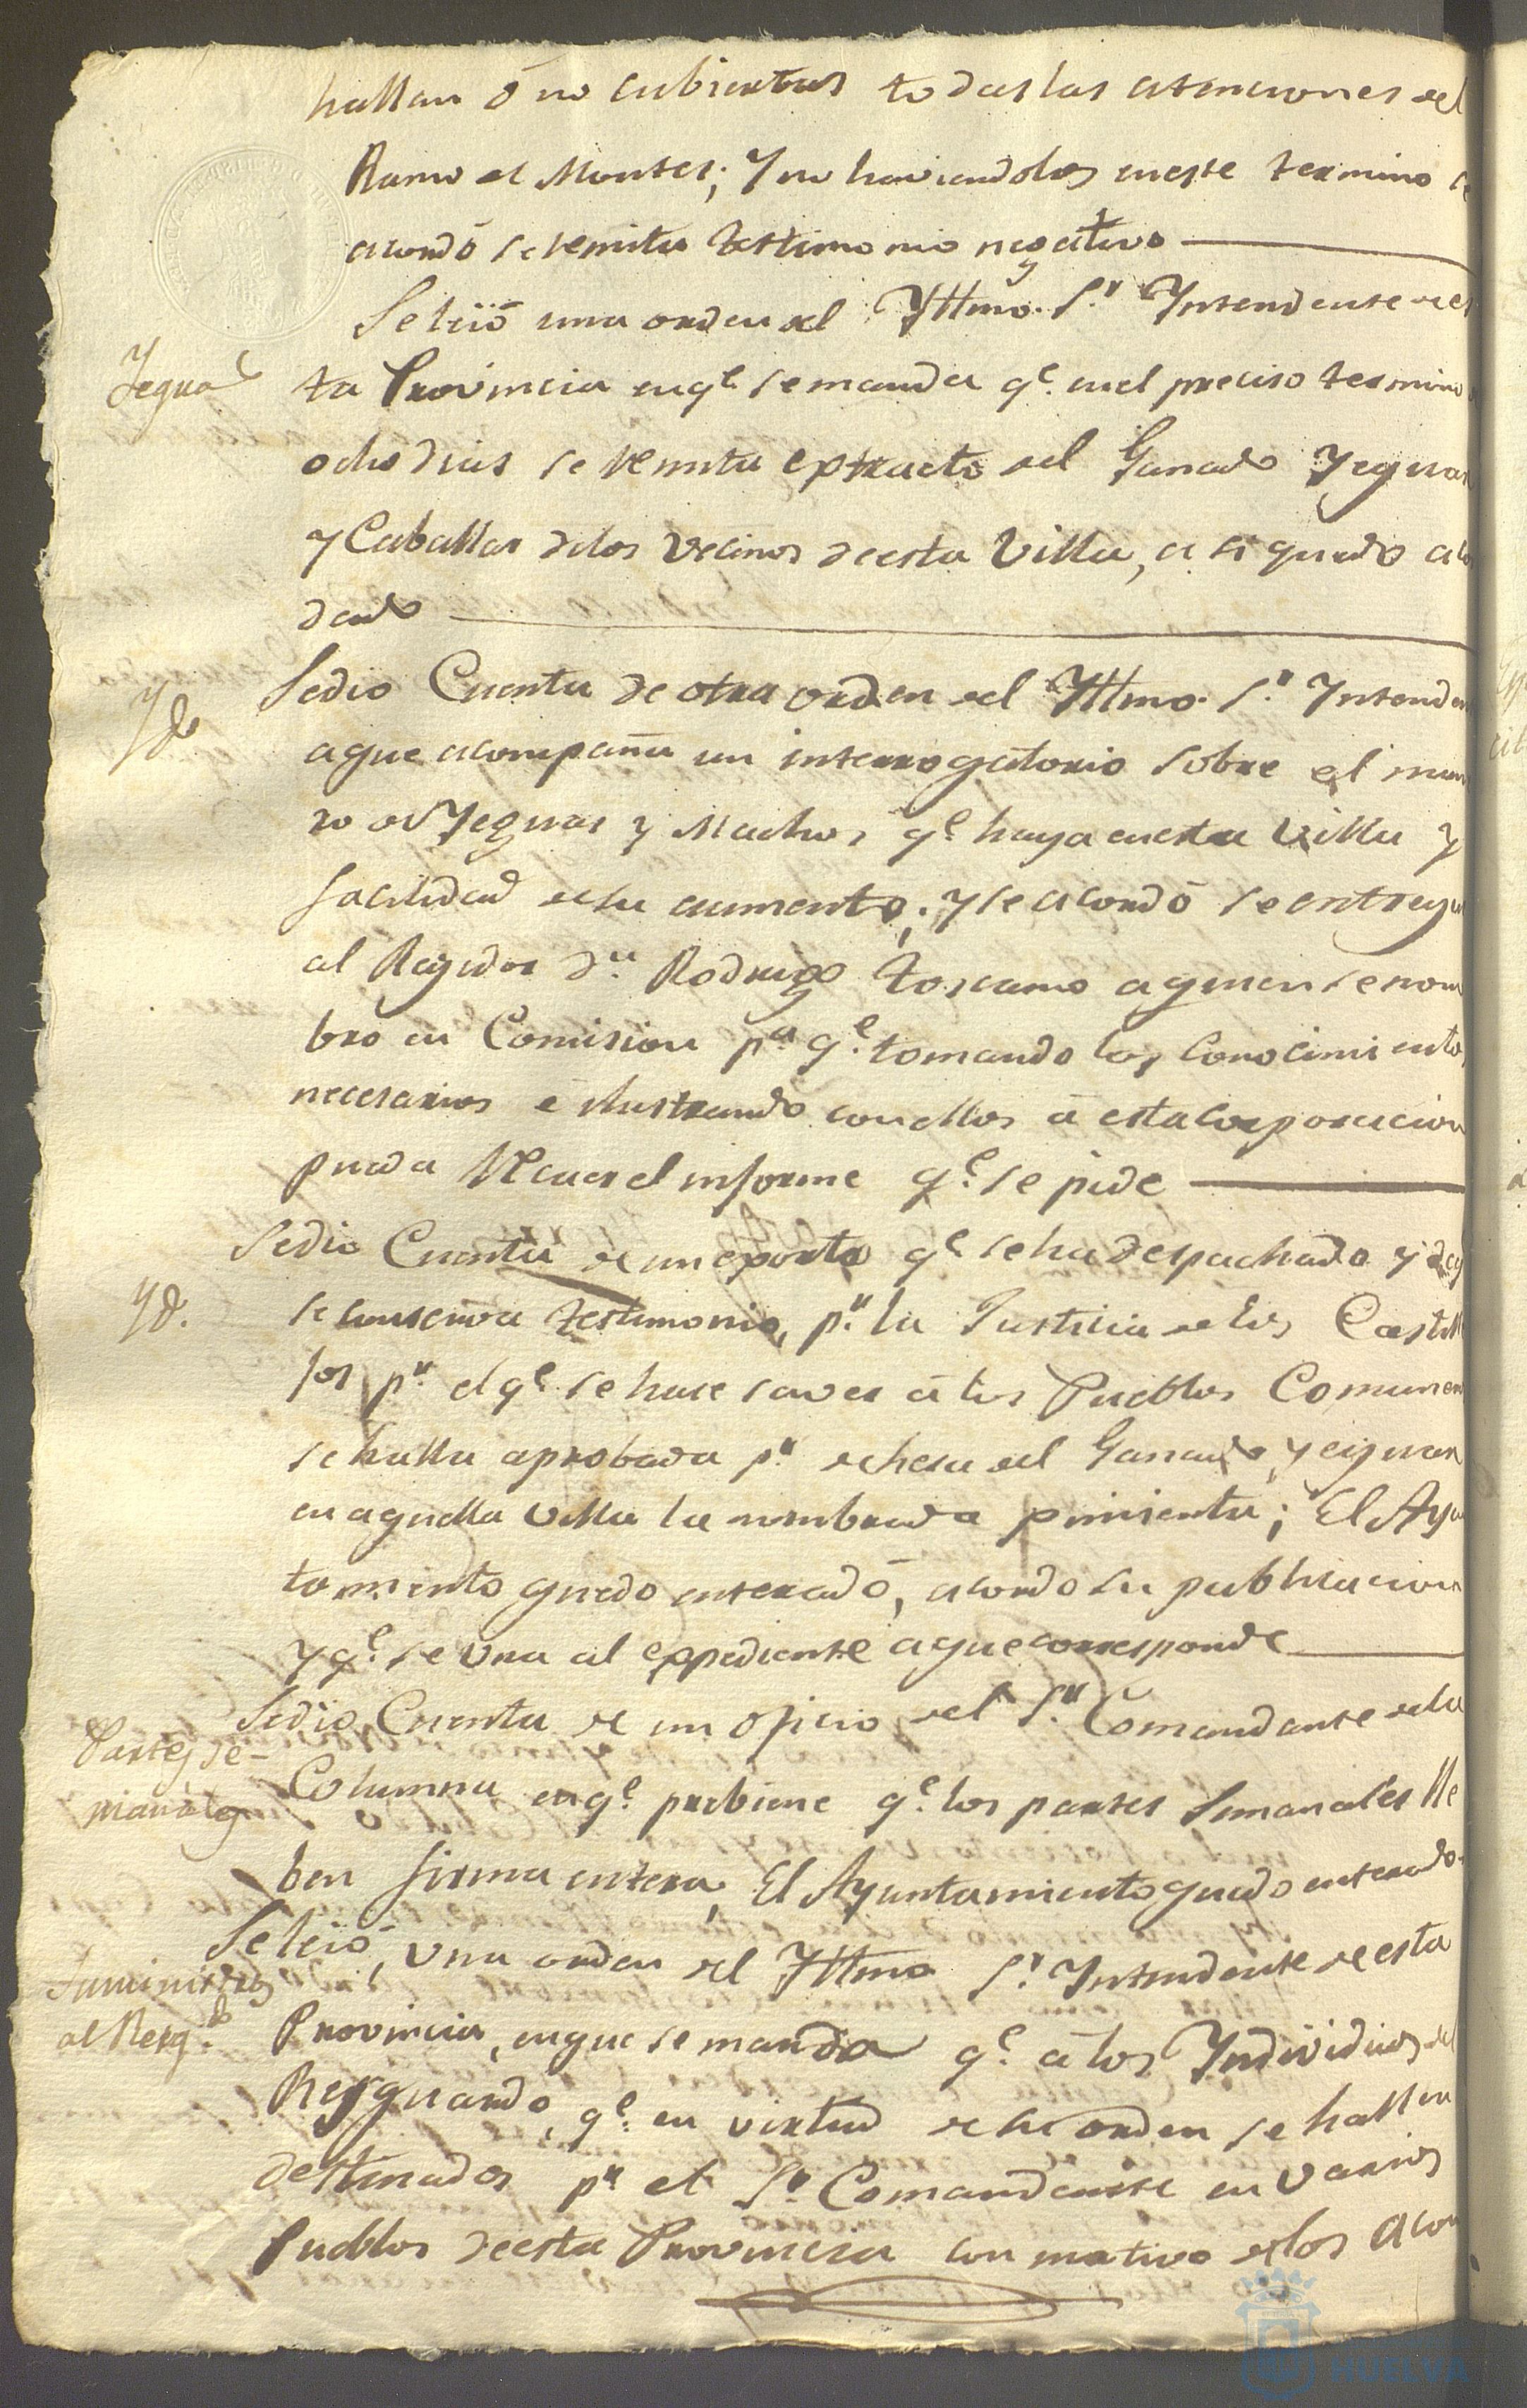 hallan ó no cubiertas todas las atenciones del
Ramo de Montes; Y no haviendolos en este termino se
acordó se remita testimonio negativo
Se leió una orden del Yttmo. S.r Yntendente de es
Yeguas
ta Provincia en q.e se manda q.e en el preciso termino
ocho dias se remita extracto del Ganado Yeguar
y Caballar de los vecinos de esta Villa, asi quedo acor
dado
Yd.
Se dio Cuenta de otra orden del Yttmo. S.r Yntenden
a que acompaña un interrogatorio sobre el nume
ro de Yeguas y Machos q.e haya en esta Villa y
facilidad de su aumento; y se acordó se entregue
al Regidor d.n Rodrigo Toscano a quien se nom
bro en Comision p.a q.e tomando los conocimientos
necesarios é ilustrando con ellos á esta Corporacion
pueda evacuar el informe q.e se pide
Se dio Cuenta de un exorto q.e se ha despachado y de q.e
Yd.
se conserva testimonio, p.r la Justicia de los Castill
jos p.r el q.e se hace saver á los Pueblos Comunen
se halla aprobada p.r dehesa del Ganado yeguar
en aquella Villa la nombrada pimienta; El Ayun
tamiento quedo enterado, acordo su publicacion
y q.e se una al expediente a que corresponde
Se dio Cuenta de un oficio del S.r Comandante de la
Partes se-
manales
Columna en q.e prebiene q.e los partes Semanales lle
ben firma entera, El Ayuntamiento quedo enterado.
Se leió, una orden del Yttmo S.r Yntendente de esta
Suministros
al Resg.do
Provincia, en que se manda q.e á los Yndividuos del
Resguardo, q.e en virtud de su orden se hallen
destinados p.r el S.r Comandante en varios
Pueblos de esta Provincia con motivo de los acon
HUELVA